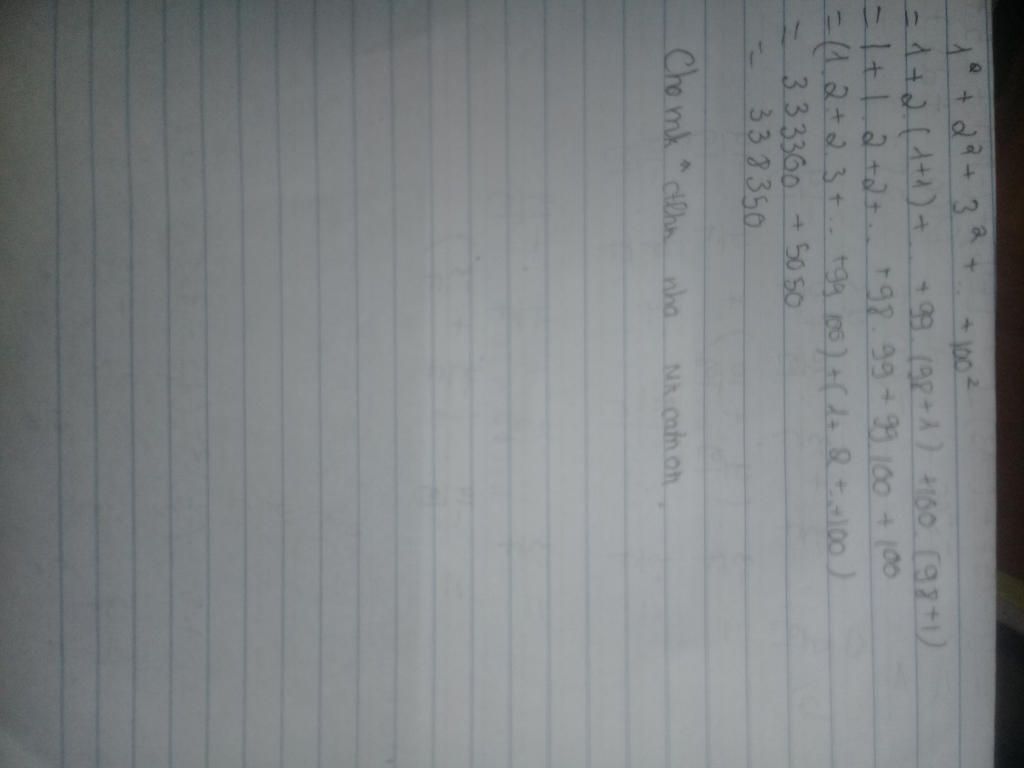 1² + 2² + 3² + .. + 100²
= 1 + 2.(1+1) + .. + 99.(98+1) + 100.(98+1)
= 1 + 1.2 + 2 + .. + 98.99 + 99.100 + 100
= (1.2 + 2.3 + .. + 99.100) + (1 + 2 + .. + 100)
= 333360 + 5050
= 338350
Cho mk ^ nha